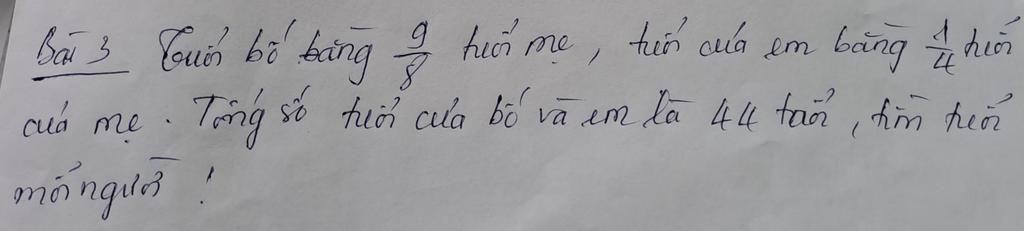 Bài 3 Tuổi bố bằng 9/8 tuổi mẹ, tuổi của em bằng 1/4 tuổi
của mẹ. Tổng số tuổi của bố và em là 44 tuổi, tìm tuổi
mỗi người!